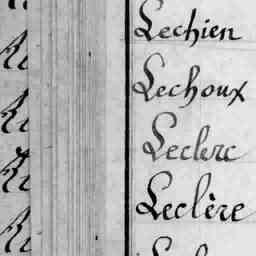 Lechien
Lechoux
Leclerc
Leclère